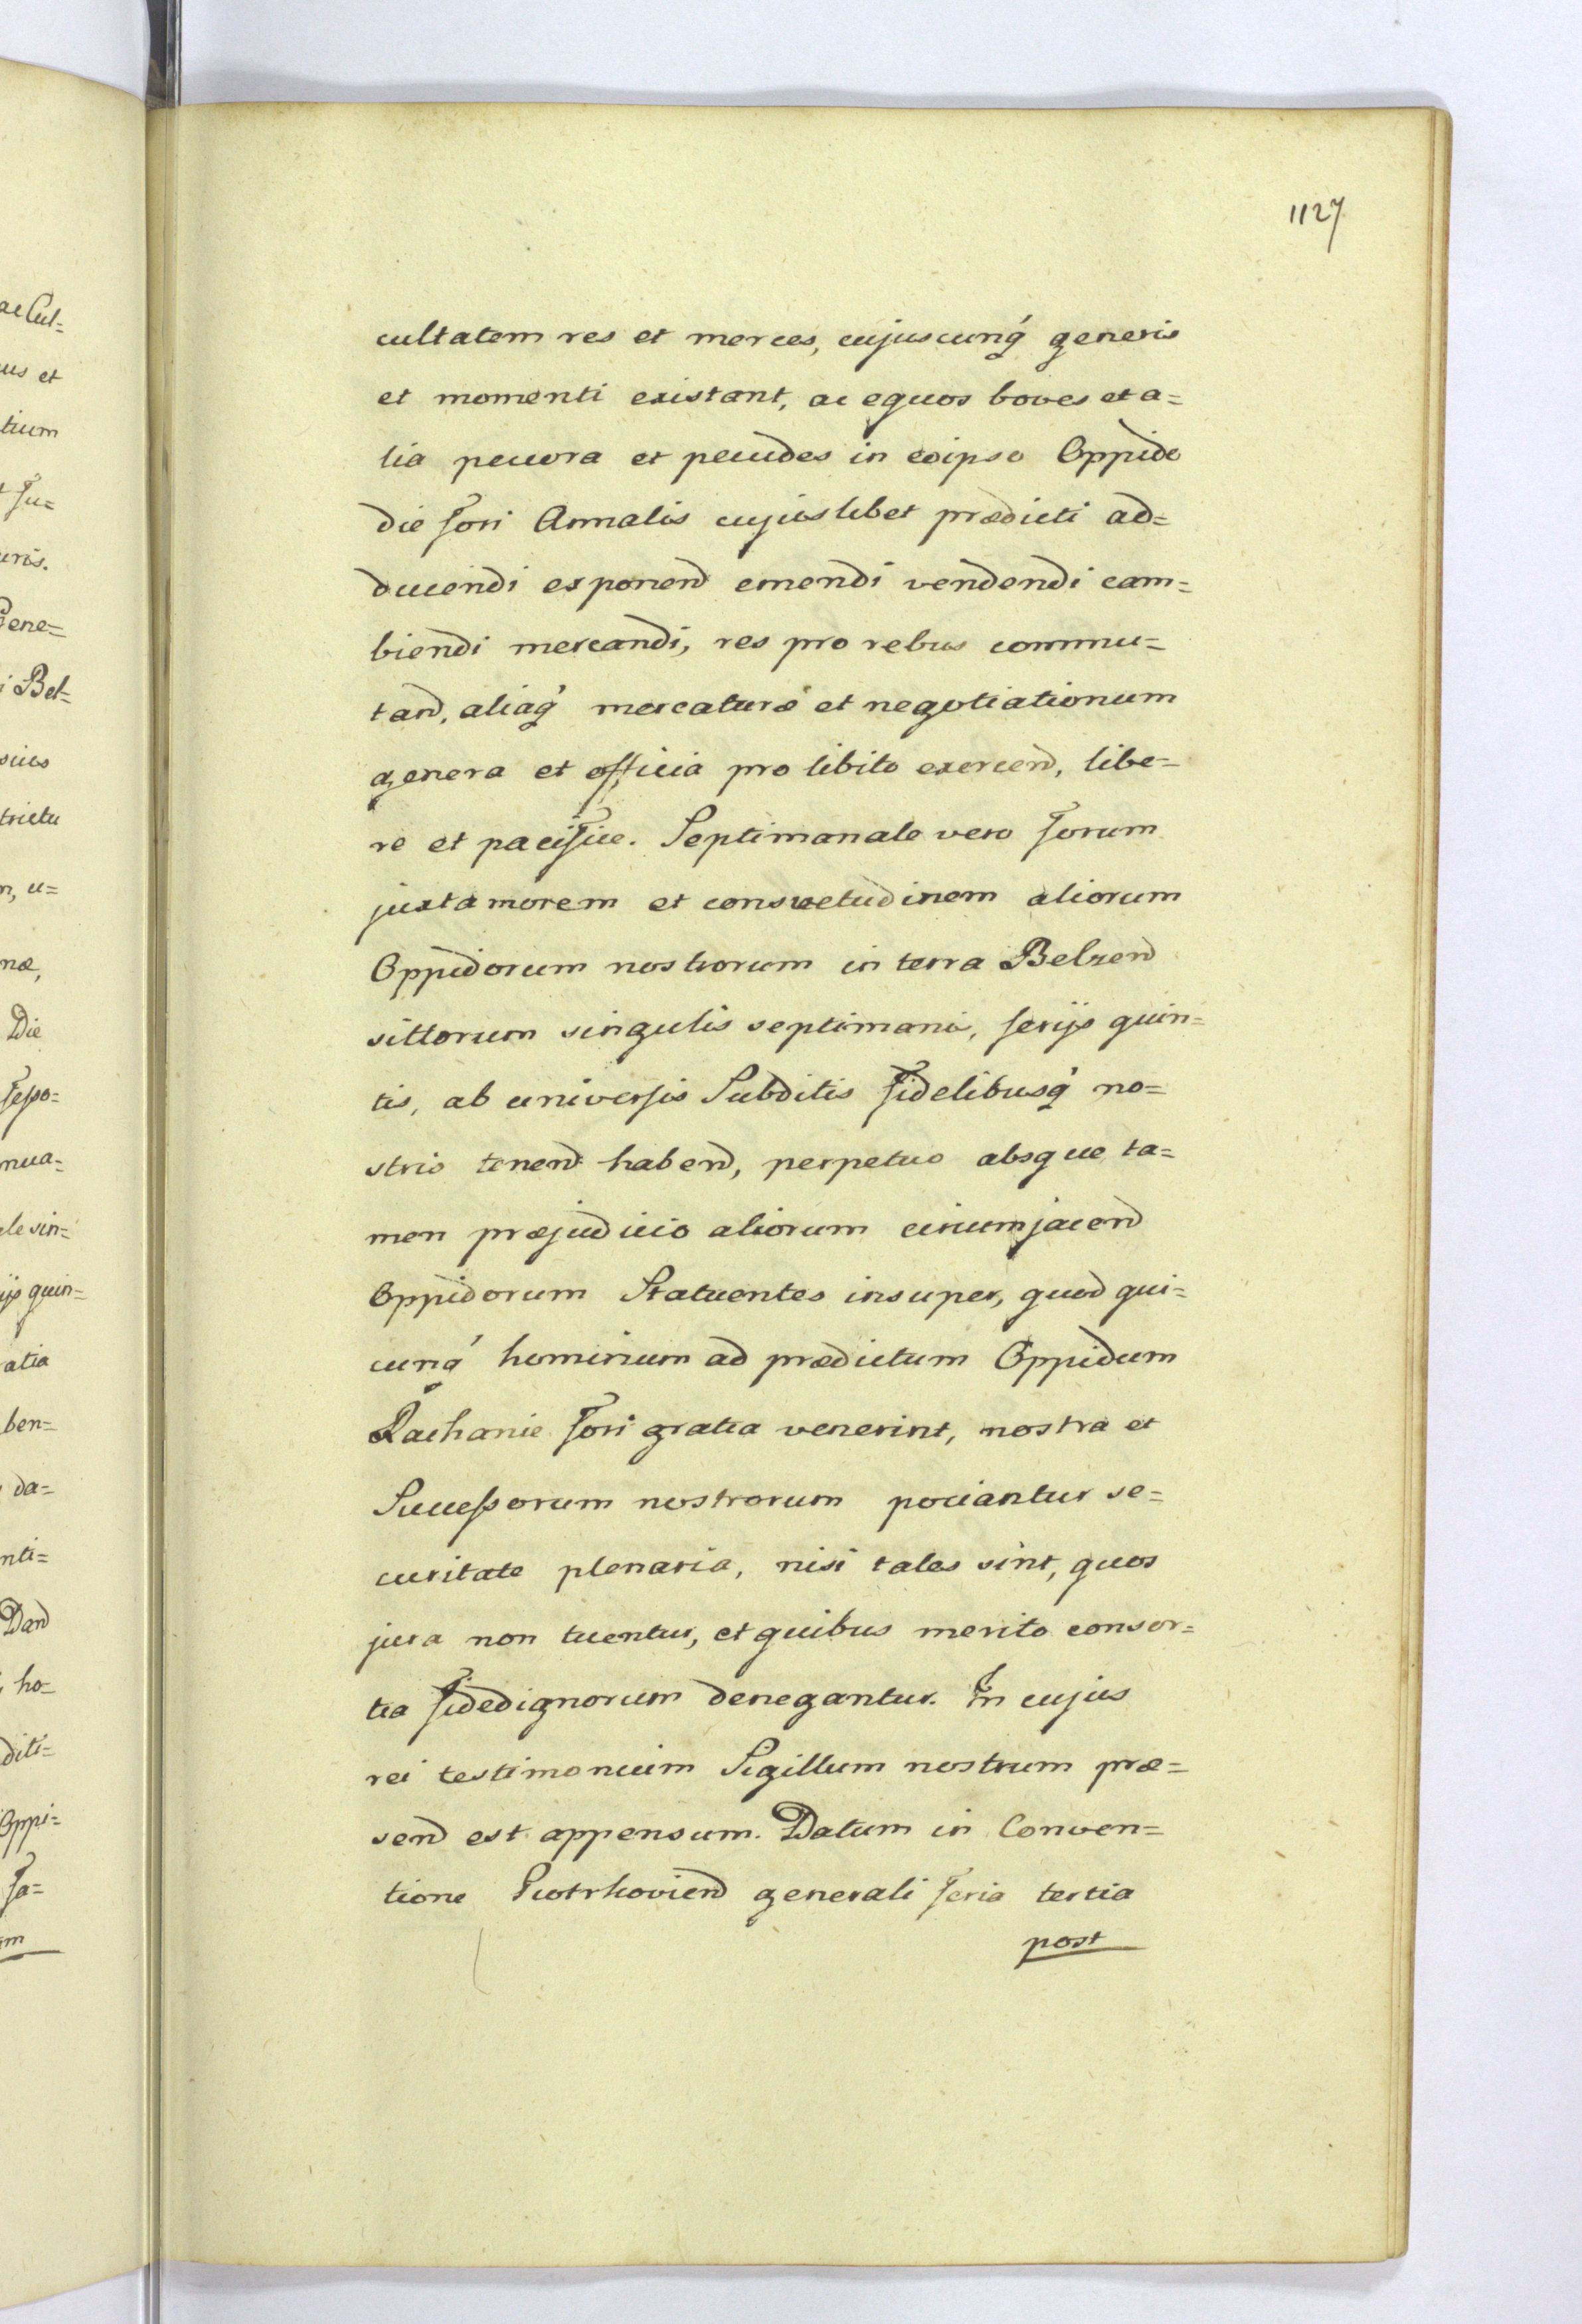 1127
cultatem res et merces, cujuscunq́ generis
et momenti existant, ac equos boves et a=
lia pecora et pecudes in eoipso Oppido
die fori Annalis cujuslibet prædicti ad=
ducendi exponend emendi vendendi cam=
biendi mercandi, res pro rebus commu=
tand, aliaq́ mercaturæ et negotiationum
genera et officia pro libito exercend, libe=
re et pacifice. Septimanale vero forum
juxta morem et consvetudinem aliorum
Oppidorum nostrorum in terra Belzend
sittorum singulis septimanis, ferijs quin=
tis, ab universis Subditis fidelibusq́ no=
stris tenend habend, perpetuo absque ta=
men præjudicio aliorum circumjacend
Oppidorum Statuentes insuper, quod qui=
cunq́ hominum ad prædictum Oppidum
Rachanie fori gratia venerint, nostra et
Successorum nostrorum pociantur se=
curitate plenaria, nisi tales sint, quos
jura non tuentur, et quibus merito consor=
tia fidedignorum denegantur. In cujus
rei testimonium Sigillum nostrum præ=
send est appensum. Datum in Conven=
tione Piotrkoviend generali feria tertia
post
ac Cul=
us et
tium
fu=
uris.
Gene=
i Bel=
suis
trictu
n, u=
næ,
Die
fesso=
nua=
le sin=
ijs quin=
atia
ben=
da=
nti=
Dand
ho=
diti=
Oppi=
fa=